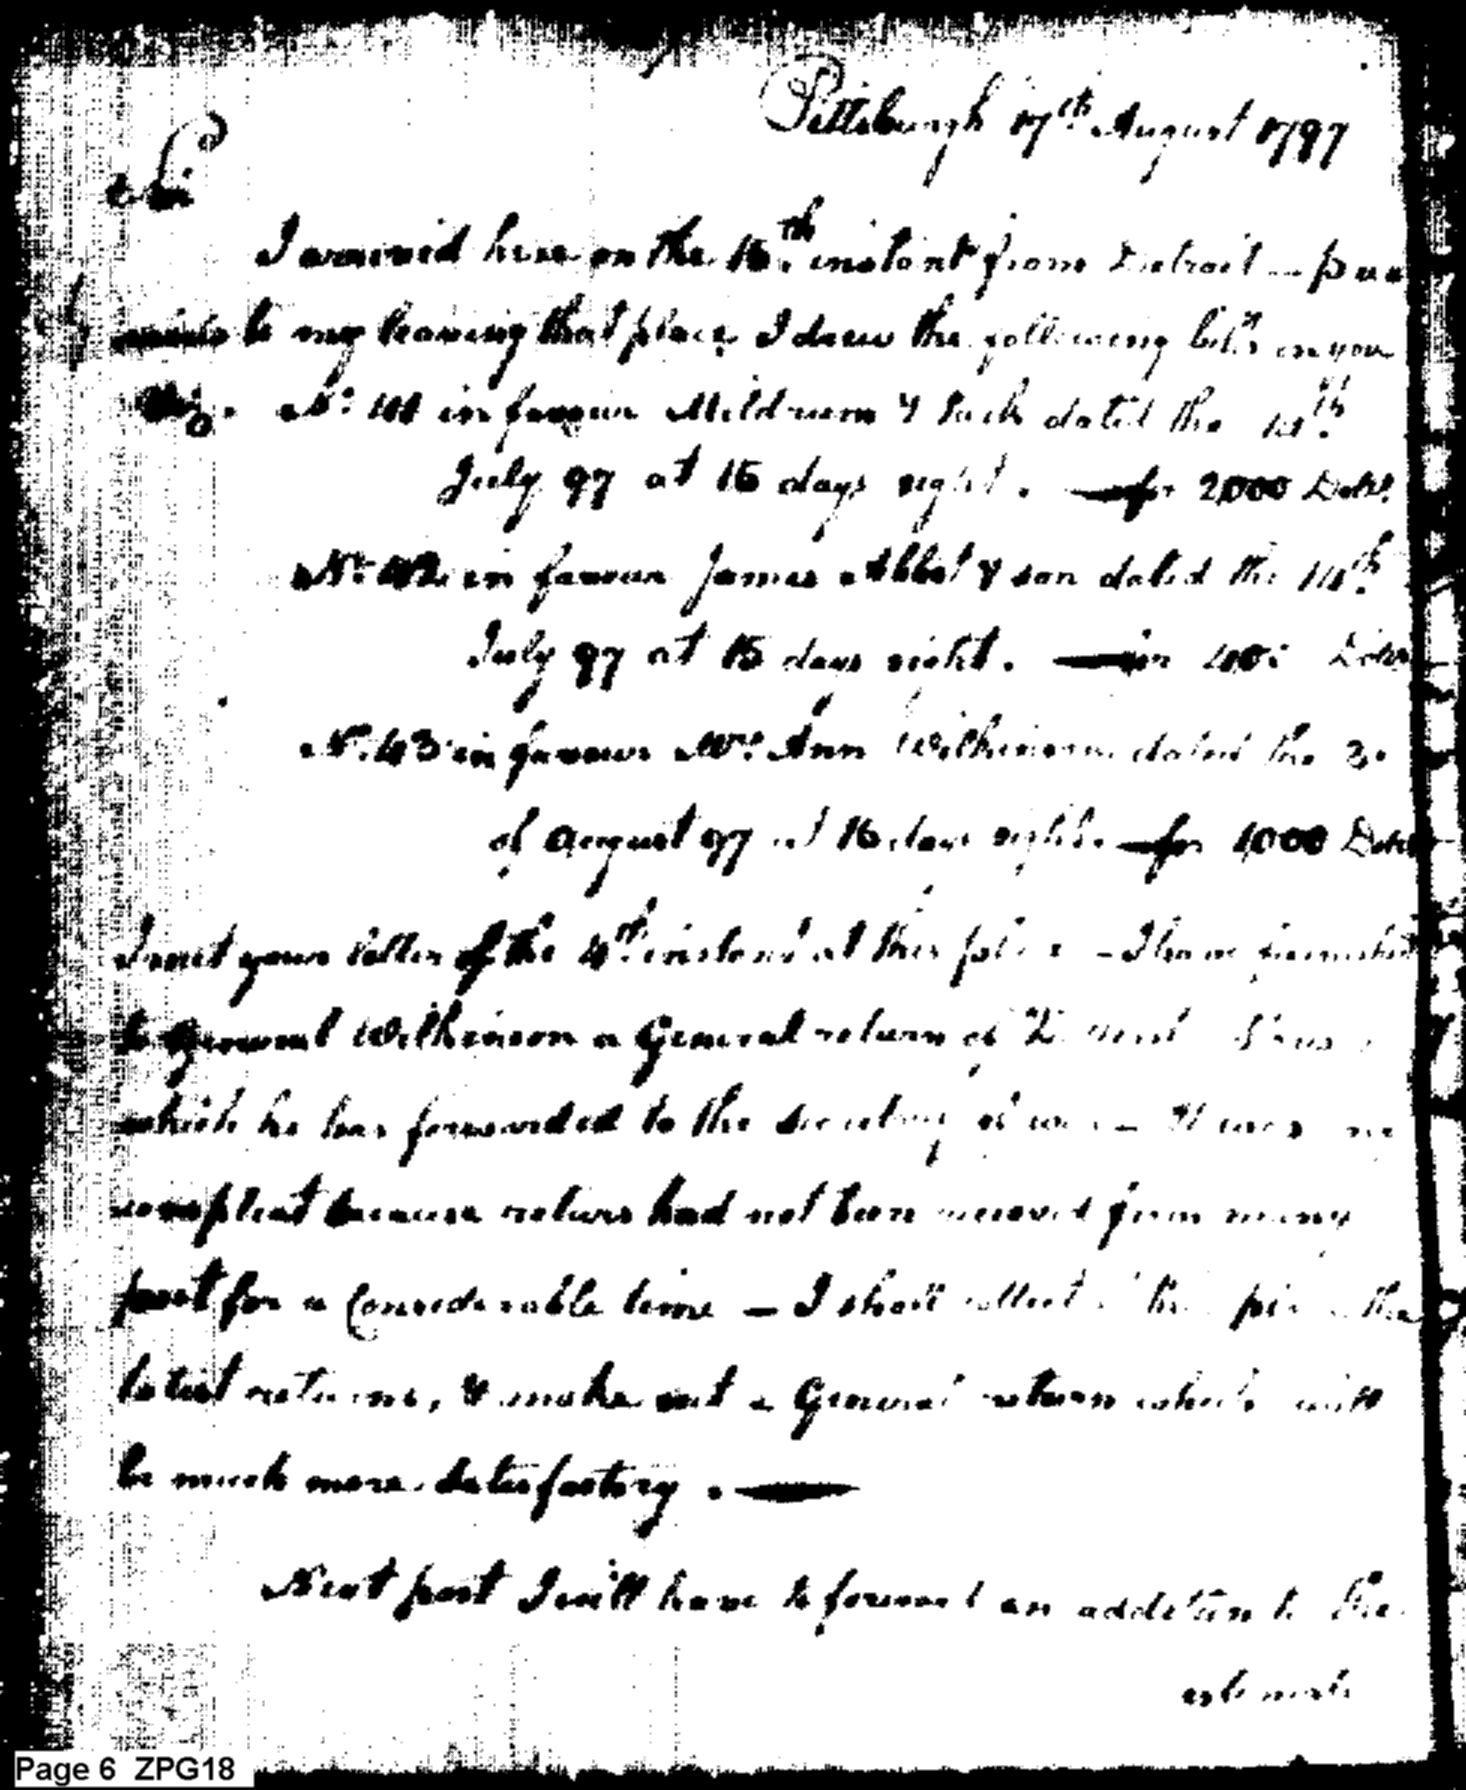 Pittsburgh 17th August 1797
Sir
I arrived here on the 16th instant from Detroit — pre
vious to my leaving that place I drew the following bills on you
Viz. No. 41 in favour Meldrum & Park dated the 14th
July 97 at 15 days sight. — for 2,000 Dolls.
No. 42 in favour James Abbot & son dated the 14th
July 97 at 15 days sight. — for Dolls
No. 43 in favour Mrs. Ann Wilkinson dated the
of August 97 at 15 days sight. — for 1,000 Dolls
I met your letter of the 4th instant at this place — I have furnished
to General Wilkinson a General return of
which he has forwarded to the Secretary of war — It was
compleat because returns had not been received from many
post for a Considerable time — I shall collect the
latest returns, & make out a General return which will
be much more satisfactory. —
Next post I will have to forward an addition to the
estimate
Page 6 ZPG18